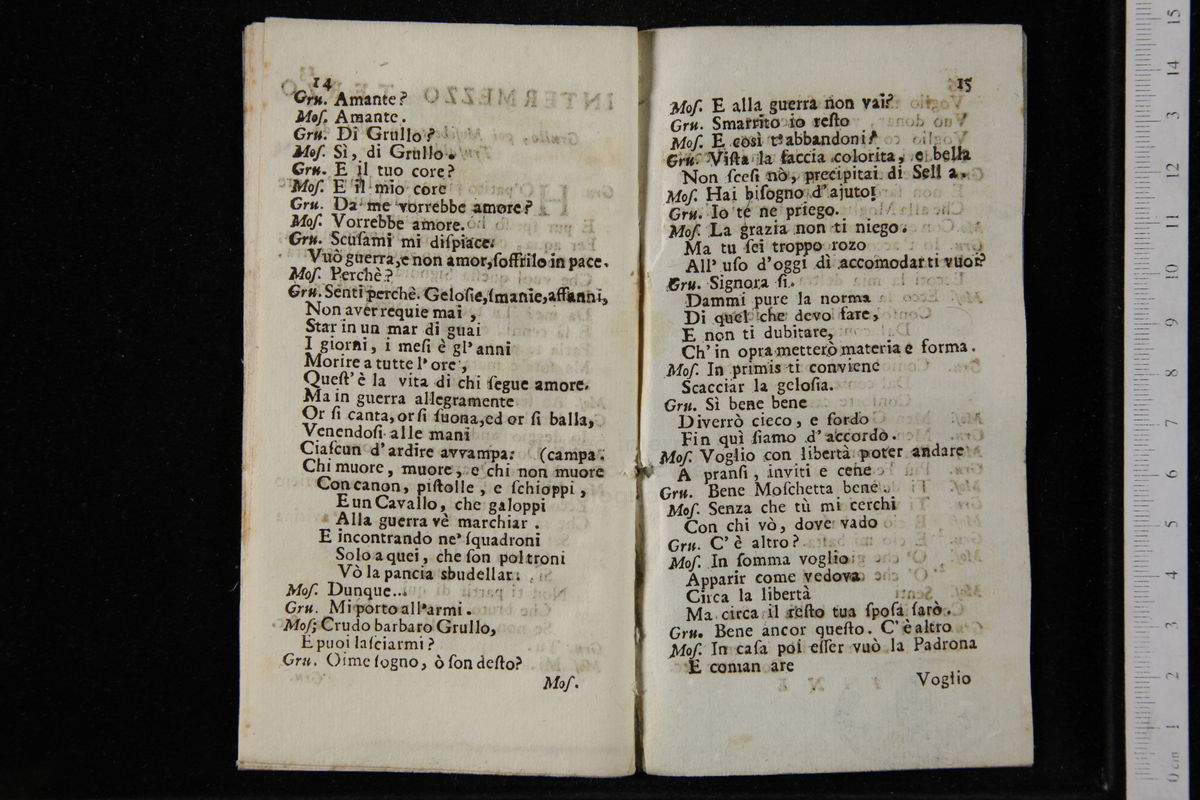 14
Gru. Amante?
Moſ. Amante.
Gru. Di Grullo?
Moſ. Sì, di Grullo.
Gru. E il tuo core?
Moſ. E il mio core
Gru. Da me vorrebbe amore?
Moſ. Vorrebbe amore.
Gru. Scuſami mi diſpiace:
Vuò guerra, e non amor, ſoffrilo in pace.
Moſ. Perchè?
Gru. Senti perchè. Geloſie, ſmanie, affanni,
Non aver requie mai,
Star in un mar di guai
I giorni, i meſi è gl' anni
Morire a tutte l' ore,
Queſt' è la vita di chi ſegue amore.
Ma in guerra allegramente
Or ſi canta, or ſi ſuona, ed or ſi balla,
Venendoſi alle mani
Ciaſcun d' ardire avvampa: (campa.
Chi muore, muore, e chi non muore
Con canon, piſtolle, e ſchioppi,
E un Cavallo, che galoppi
Alla guerra vè marchiar.
E incontrando ne' ſquadroni
Solo a quei, che ſon poltroni
Vò la pancia sbudellar.
Moſ. Dunque...
Gru. Mi porto all'armi.
Moſ; Crudo barbaro Grullo,
E puoi laſciarmi?
Gru. Oime ſogno, ò ſon deſto?
Moſ.
15
Moſ. E alla guerra non vai?
Gru. Smarrito io reſto
Moſ. E così t'abbandoni?
Gru. Viſta la faccia colorita, e bella
Non ſceſi nò, precipitai di Sella.
Moſ. Hai biſogno d' ajuto!
Gru. Io te ne priego.
Moſ. La grazia non ti niego.
Ma tu ſei troppo rozo
All' uſo d'oggi dì accomodarti vuoi?
Gru. Signora ſi.
Dammi pure la norma
Di quel che devo fare,
E non ti dubitare,
Ch' in opra metterò materia e forma.
Moſ. In primis ti conviene
Scacciar la geloſia.
Gru. Sì bene bene
Diverrò cieco, e ſordo
Fin quì ſiamo d' accordo.
Moſ. Voglio con libertà poter andare
A pranſi, inviti e cene
Gru. Bene Moſchetta bene.
Moſ. Senza che tù mi cerchi
Con chi vò, dove vado
Gru. C' è altro?
Moſ. In ſomma voglio
Apparir come vedova
Circa la libertà
Ma circa il reſto tua ſpoſa ſarò.
Gru. Bene ancor queſto. C' è altro
Moſ. In caſa poi eſſer vuò la Padrona
E coman are
Voglio